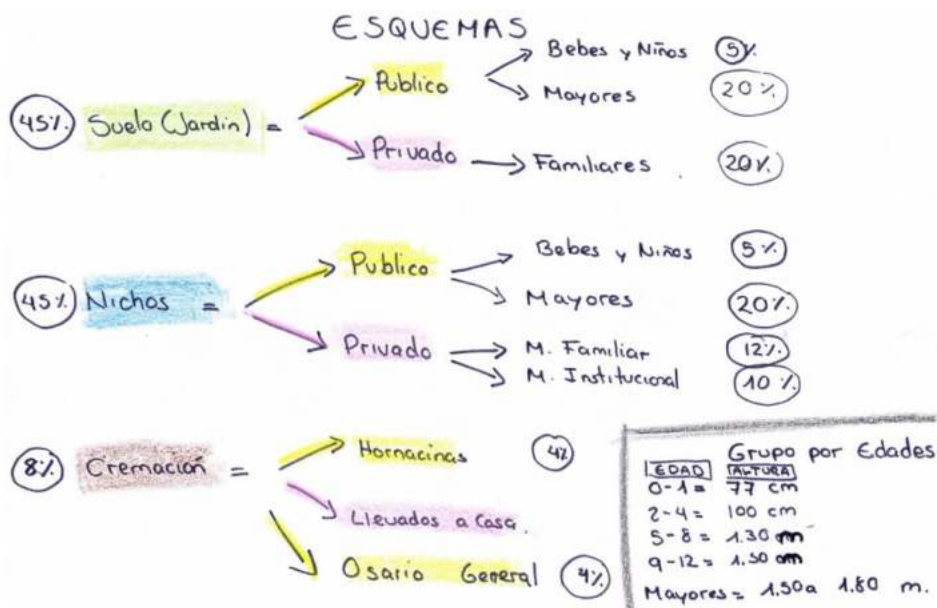 ESQUEMAS
45%. Suelo (Jardin) =
Publico
Bebes y Niños 5%
Mayores 20%
Privado
Familiares. 20%
45% Nichos =
Publico
Bebes y Niños 5%
Mayores 20%
Privado
M. Familiar 12%
M. Institucional 10%
8% Cremación =
Hornacinas 4%
Llevados a Casa.
Osario General 4%
Grupo por Edades
EDAD ALTURA
0-1 = 77 cm
2-4 = 100 cm
5-8 = 1.30 m
9-12 = 1.50 m
Mayores = 1.50 a 1.80 m.